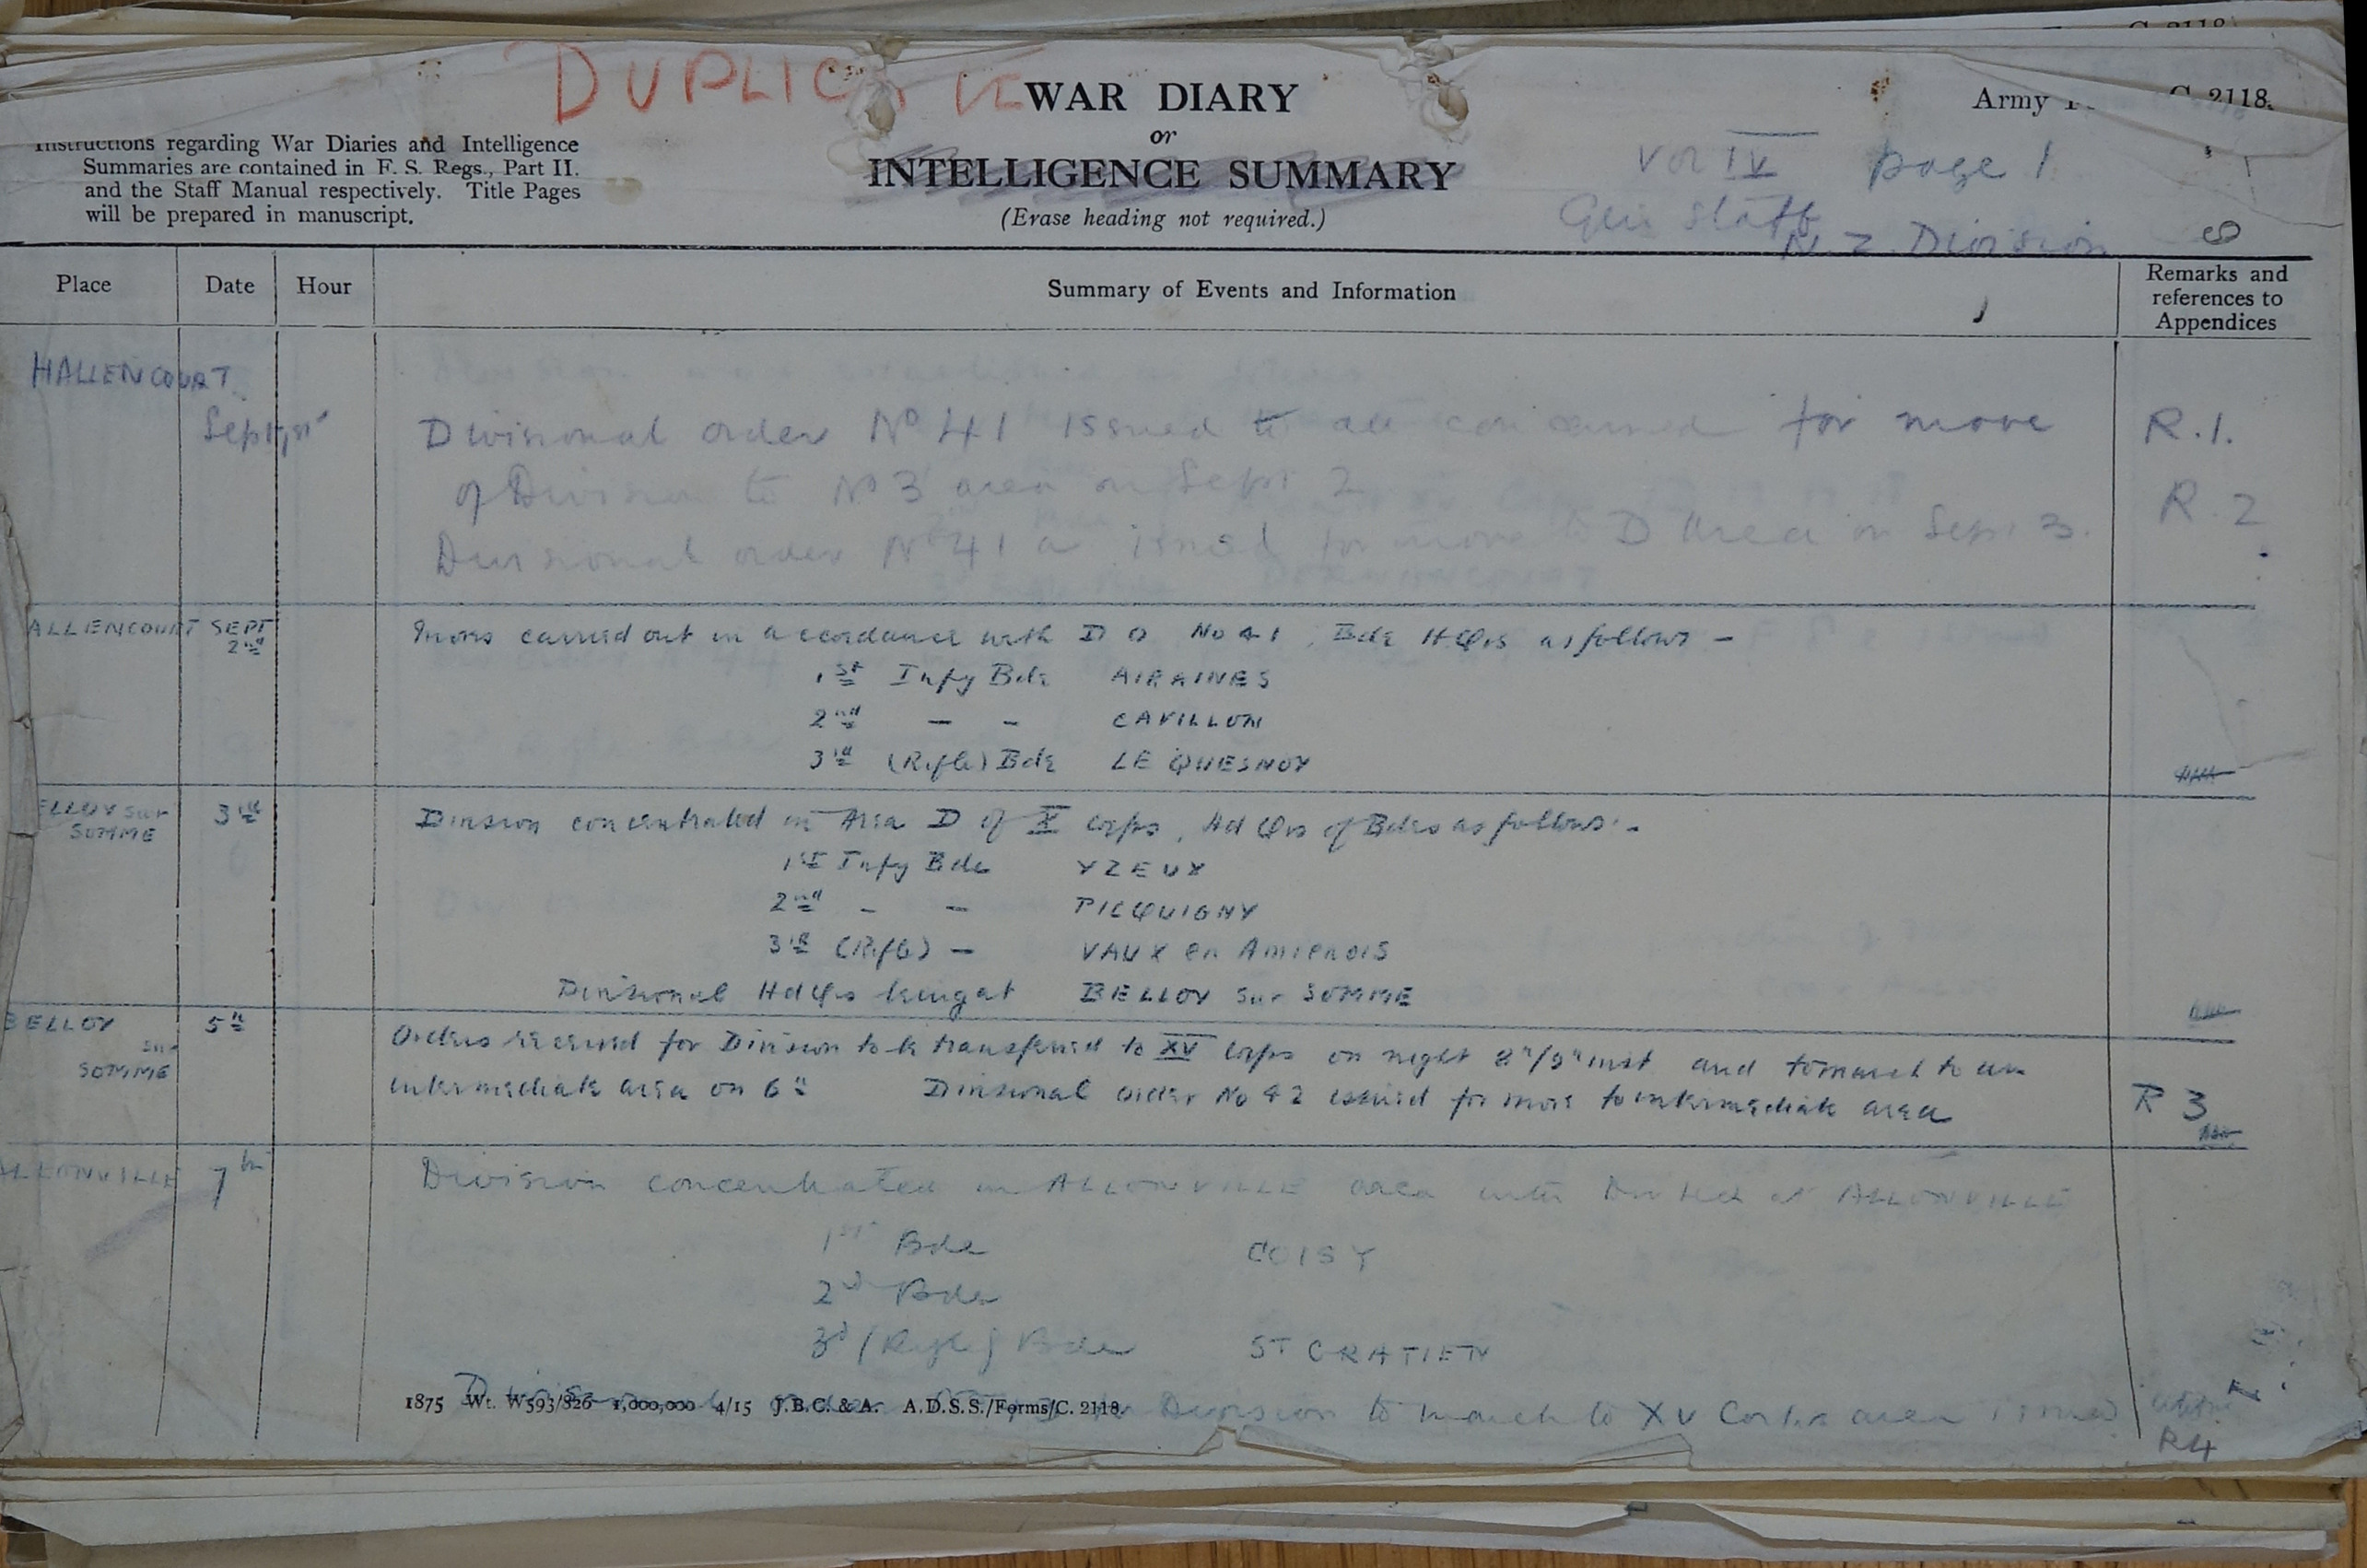 C. 2118
DUPLICATE
WAR DIARY
or
INTELLIGENCE SUMMARY
(Erase heading not required.)
Army C. 2118.
Instructions regarding War Diaries and Intelligence
Summaries are contained in F. S. Regs., Part II.
and the Staff Manual respectively. Title Pages
will be prepared in manuscript.
Vol IV page 1
Gen Staff
N.Z. Division
Place Date Hour Summary of Events and Information Remarks and references to Appendices
HALLENCOURT
Sept 1st Divisional order No 41 issued to all concerned for move R.1.
of Division to No 3 area on Sept 2 R.2
Divisional order No 41 a issued for move to D Area on Sept 3.
ALLENCOURT SEPT 2nd Moves carried out in accordance with D O No 41. Bde H.Qrs as follows -
1st Infy Bde AIRAINES
2nd - - CAVILLON
3rd (Rifle) Bde LE QUESNOY
ELLOY sur SOMME 3rd Division concentrated in Area D of X Corps, Hd Qrs of Bdes as follows:-
1st Infy Bde YZEUX
2nd - - PICQUIGNY
3rd (Rifle) - VAUX en Amienois
Divisional Hd Qrs being at BELLOY sur SOMME
BELLOY sur SOMME 5th Orders received for Division to be transferred to XV Corps on night 8th/9th inst and to march to an
intermediate area on 6th Divisional order No 42 issued for move to intermediate area R 3
ALLONVILLE 7th Division concentrated in ALLONVILLE area with Div Hd at ALLONVILLE
1st Bde COISY
2d Bde
3d (Rifle) Bde ST GRATIEN
Divisional order for Division to march to XV Corps area issued R4
1875 Wt. W593/826 1,000,000 4/15 J.B.C. & A. A.D.S.S./Forms/C. 2118.